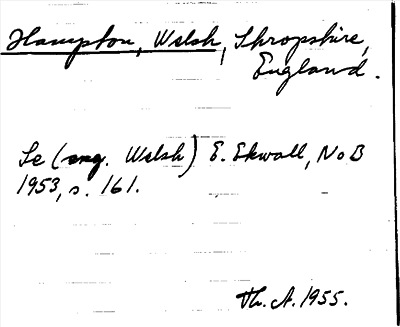 Hampton, Welsh, Shropshire,
England.
Se (eng. Welsh) E. Ekwall, NoB
1953, s. 161.
Th. A. 1955.